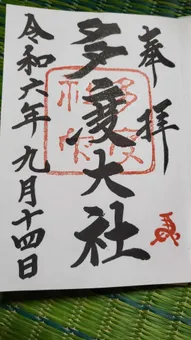 奉拝
多度大社
令和六年九月十四日